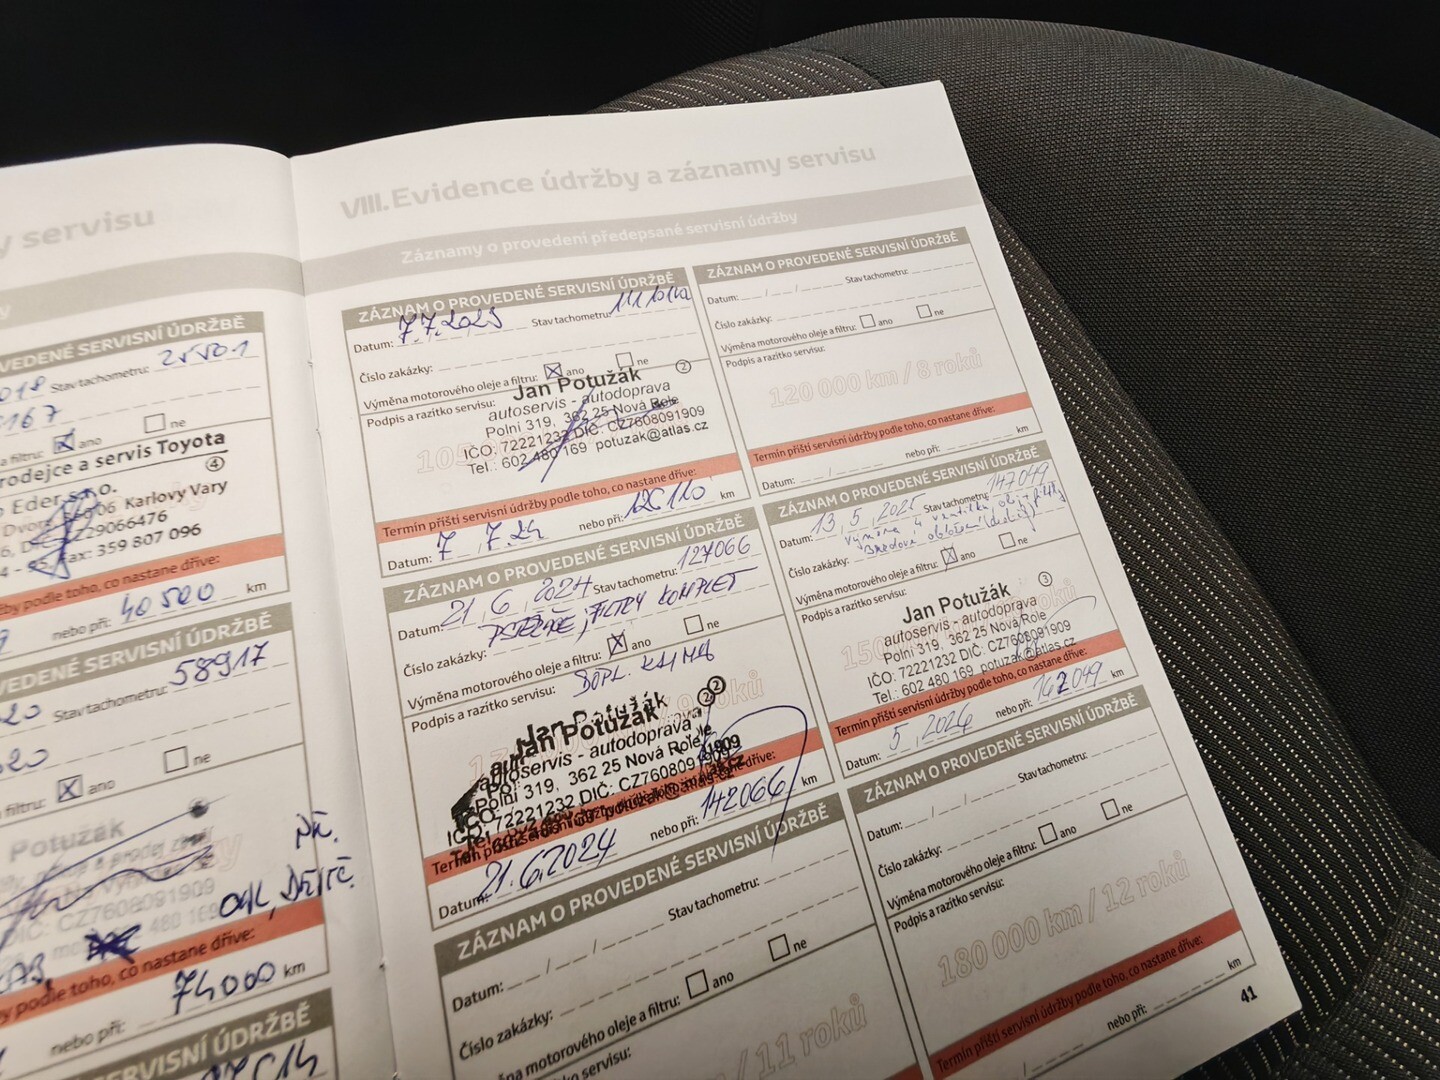 y servisu
y
VEDENÉ SERVISNÍ ÚDRŽBĚ
018 Stav tachometru: 25501
167
a filtru: ano ne
rodejce a servis Toyota
④
Eder s.r.o.
Dvory 06 Karlovy Vary
6, DIČ: CZ29066476
fax: 359 807 096
žby podle toho, co nastane dříve:
9 nebo při: 40500 km
VEDENÉ SERVISNÍ ÚDRŽBĚ
20 Stav tachometru: 58917
20
a filtru: ano ne
Potužák
CZ7608091909
480 169
podle toho, co nastane dříve:
nebo při: 74000 km
SERVISNÍ ÚDRŽBĚ
VIII. Evidence údržby a záznamy servisu
Záznamy o provedení předepsané servisní údržby
ZÁZNAM O PROVEDENÉ SERVISNÍ ÚDRŽBĚ
Datum: 7.7.2023 Stav tachometru:
Číslo zakázky:
Výměna motorového oleje a filtru: ano ne
Podpis a razítko servisu:
Jan Potužák ②
autoservis - autodoprava
Polní 319, 362 25 Nová Role
IČO: 72221232 DIČ: CZ7608091909
Tel.: 602 480 169 potuzak@atlas.cz
Termín příští servisní údržby podle toho, co nastane dříve:
Datum: 7 7.24 nebo při: km
ZÁZNAM O PROVEDENÉ SERVISNÍ ÚDRŽBĚ
Datum: 21 6 2024 Stav tachometru: 127066
FILTRY KOMPLET
Číslo zakázky:
Výměna motorového oleje a filtru: ano ne
Podpis a razítko servisu: DOPL. KLIMA
Jan Potužák ②
autoservis - autodoprava
Polní 319, 362 25 Nová Role
IČO: 72221232 DIČ: CZ7608091909
Tel.: 602 480 169 potuzak@atlas.cz
Termín příští servisní údržby podle toho, co nastane dříve:
Datum: 21.6.2024 nebo při: 142066 km
ZÁZNAM O PROVEDENÉ SERVISNÍ ÚDRŽBĚ
Datum: Stav tachometru:
Číslo zakázky:
Výměna motorového oleje a filtru: ano ne
Podpis a razítko servisu:
/ 11 roků
ZÁZNAM O PROVEDENÉ SERVISNÍ ÚDRŽBĚ
Datum: Stav tachometru:
Číslo zakázky:
Výměna motorového oleje a filtru: ano ne
Podpis a razítko servisu:
120 000 km / 8 roků
Termín příští servisní údržby podle toho, co nastane dříve:
Datum: nebo při: km
ZÁZNAM O PROVEDENÉ SERVISNÍ ÚDRŽBĚ
Datum: 13. 5. 2025 Stav tachometru: 147049
Číslo zakázky:
Výměna motorového oleje a filtru: ano ne
Podpis a razítko servisu:
Jan Potužák ③
autoservis - autodoprava
Polní 319, 362 25 Nová Role
IČO: 72221232 DIČ: CZ7608091909
Tel.: 602 480 169 potuzak@atlas.cz
Termín příští servisní údržby podle toho, co nastane dříve:
5. 2026 nebo při: 162049 km
ZÁZNAM O PROVEDENÉ SERVISNÍ ÚDRŽBĚ
Datum: Stav tachometru:
Číslo zakázky:
Výměna motorového oleje a filtru: ano ne
Podpis a razítko servisu:
180 000 km / 12 roků
Termín příští servisní údržby podle toho, co nastane dříve:
nebo při: km
41